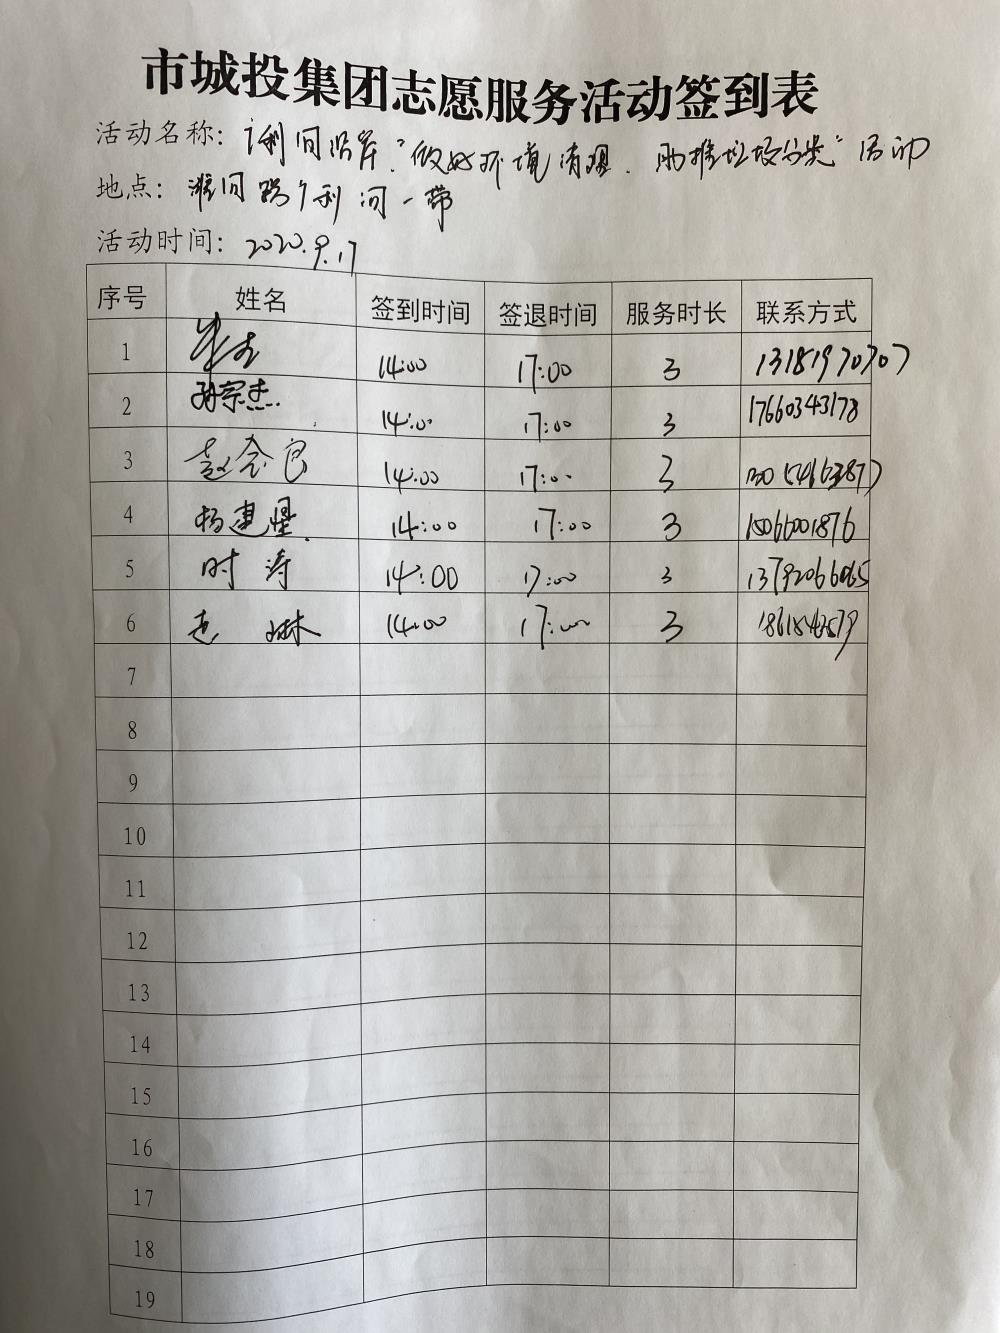 市城投集团志愿服务活动签到表
活动名称：广利河沿岸"做好环境清理、助推垃圾分类"活动
地点：潍河路广利河一带
活动时间：2020.9.17
序号 姓名 签到时间 签退时间 服务时长 联系方式
1 14:00 17:00 3 13181970707
2 孙宗杰 14:00 17:00 3 17660343178
3 赵念良 14:00 17:00 3
4 杨建星 14:00 17:00 3 15066001876
5 时涛 14:00 17:00 3 13792066065
6 14:00 17:00 3
7
8
9
10
11
12
13
14
15
16
17
18
19